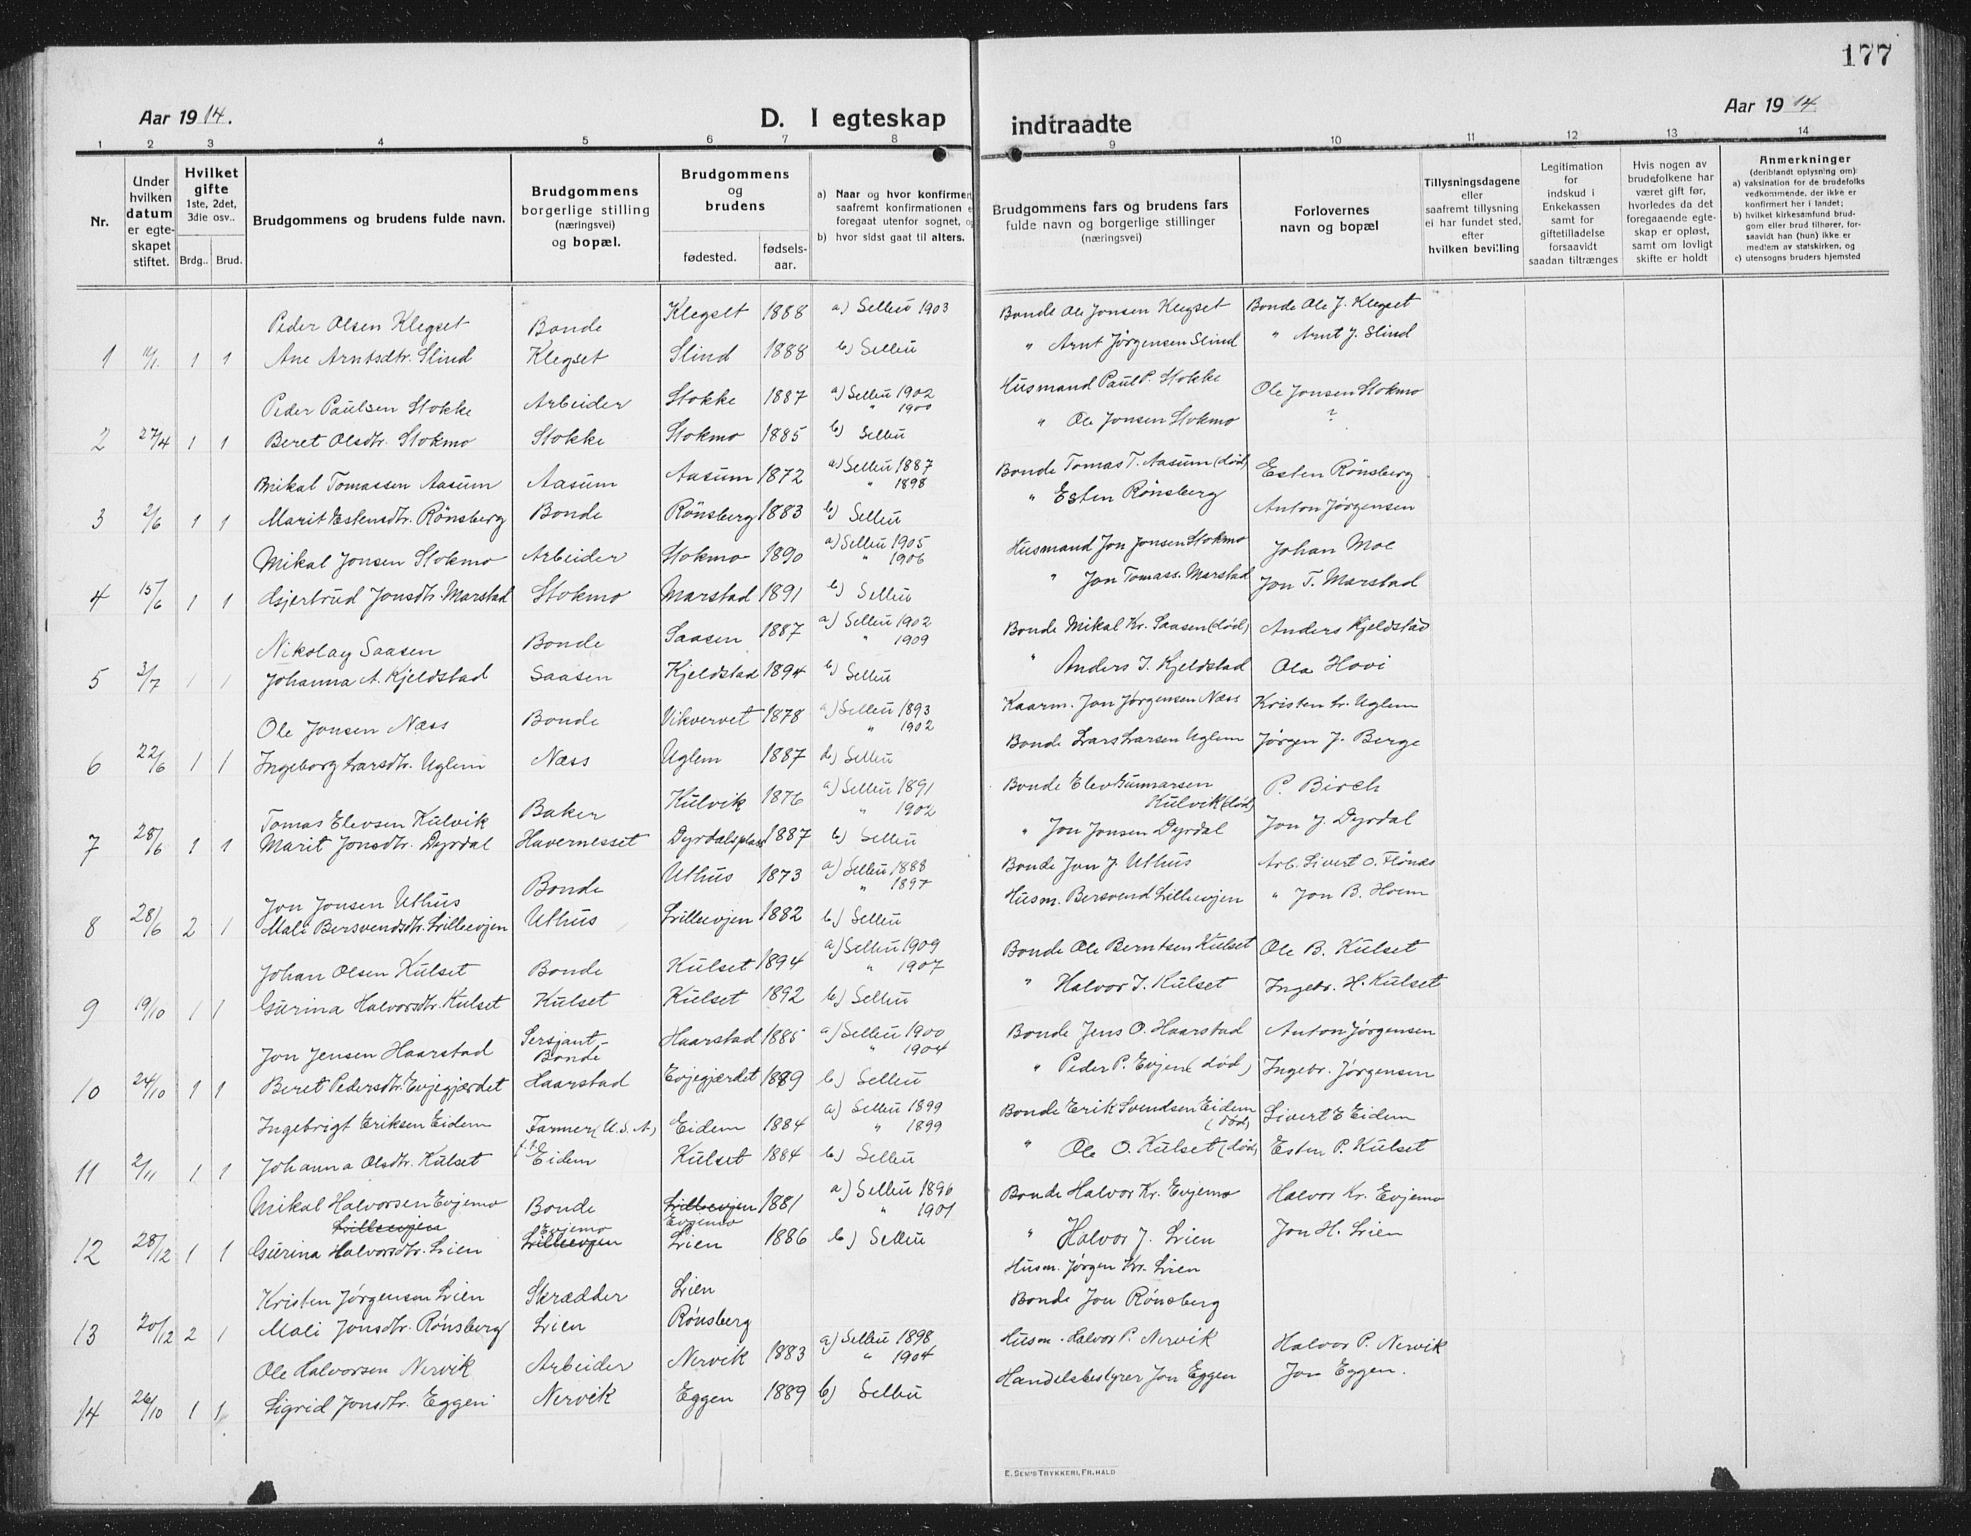 177
Aar 1914.
D. I egteskap indtraadte
Aar 1914
1 2 3 4 5 6 7 8 9 10 11 12 13 14
Nr.
Under hvilken datum er egteskapet stiftet.
Hvilket gifte 1ste, 2det, 3die osv..
Brdg.. Brud.
Brudgommens og brudens fulde navn.
Brudgommens borgerlige stilling (næringsvei) og bopæl.
Brudgommens og brudens
fødested.
fødselsaar.
a) Naar og hvor konfirmert, saafremt konfirmationen e foregaat utenfor sognet, og
b) hvor sidst gaat til alters.
Brudgommens fars og brudens fars fulde navn og borgerlige stillinger (næringsvei)
Forlovernes navn og bopæl
Tillysningsdagene eller saafremt tillysning ei har fundet sted, efter hvilken bevilling
Legitimation for indskud i Enkekassen samt for giftetilladelse forsaavidt saadan tiltrænges
Hvis nogen av brudefolkene har været gift før, hvorledes da det foregaaende egteskap er opløst, samt om lovligt skifte er holdt
Anmerkninger (deriblandt oplysning om):
a) vaksination for de brudefolks vedkommende, der ikke er konfirmert her i landet;
b) hvilket kirkesamfund brudgom eller brud tilhører, forsaavidt han (hun) ikke er medlem av statskirken, og
c) utensogns bruders hjemsted
Peder Olsen Klegset Bonde Klegset 1888 a) Selbu 1903 Bonde Ole Jonsen Klegset Bonde Ole J. Klegset
1 1 1 Ane Arntsdtr. Slind Klegset Slind 1888 b) Selbu " Arnt Jørgensen Slind " Arnt J. Slind
Peder Paulsen Stokke Arbeider Stokke 1887 a) Selbu 1902 " 1900 Husmand Paul P. Stokke Ole Jonsen Stokmo
2 27/4 1 1 Beret Olsdtr. Stokmo Stokke Stokmo 1885 b) Selbu " Ole Jonsen Stokmo ?
Mikal Tomassen Aasum Aasum Aasum 1872 a) Selbu 1887 " 1898 Bonde Tomas T. Aasum (død) Esten Rönsberg
3 2/6 1 1 Marit Estensdtr. Rönsberg Bonde Rönsberg 1883 b) Selbu " Esten Rönsberg Anton Jørgensen
Mikal Jonsen Stokmo Arbeider Stokmo 1890 a) Selbu 1905 " 1906 Husmand Jon Jonsen Stokmo Johan Moe
4 15/6 1 1 Gjertrud Jonsdtr. Marstad Stokmo Marstad 1891 b) Selbu " Jon Tomass. Marstad Jon T. Marstad
Nikolay Saasen Bonde Saasen 1887 a) Selbu 1902 " 1909 Bonde Mikal Kr. Saasen (død) Anders Kjeldstad
5 3/7 1 1 Johanna A. Kjeldstad Saasen Kjeldstad 1894 b) Selbu " Anders J. Kjeldstad Ola Hovi
Ole Jonsen Næss Bonde Vikvervet 1878 a) Selbu 1893 " 1902 Kaarm. Jon Jørgensen Næss Kristen Lr. Uglem
6 22/6 1 1 Ingeborg Larsdtr. Uglem Næss Uglem 1887 b) Selbu Bonde Lars Larsen Uglem Jørgen J. Berge
Tomas Elevsen Kulvik Baker Kulvik 1876 a) Selbu 1891 " 1902 Bonde Elev Gunnarsen Kulvik (død) P. Birch
7 28/6 1 1 Marit Jonsdtr. Dyrdal Havernesset Dyrdalsplass 1887 b) Selbu " Jon Jonsen Dyrdal Jon J. Dyrdal
Jon Jonsen Uthus Bonde Uthus 1873 a) Selbu 1888 " 1897 Bonde Jon J. Uthus Arb. Sivert O. Flönæs
8 28/6 2 1 Mali Bersvendsdtr. Lilleevjen Uthus Lilleevjen 1882 b) Selbu Husm. Bersvend Lilleevjen " Jon B. Hoem
Johan Olsen Kulset Bonde Kulset 1894 a) Selbu 1909 " 1907 Bonde Ole Berntsen Kulset Ole B. Kulset
9 19/10 1 1 Gurina Halvorsdtr. Kulset Kulset Kulset 1892 b) Selbu " Halvor J. Kulset Ingebr. H. Kulset
Jon Jensen Haarstad Sersjant - Bonde Haarstad 1885 a) Selbu 1900 " 1904 Bonde Jens O. Haarstad Anton Jørgensen
10 24/10 1 1 Beret Pedersdtr. Evjegjærdet Haarstad Evjegjærdet 1889 b) Selbu " Peder P. Evjen (død) Ingebr. Jørgensen
Ingebrigt Eriksen Eidem Farmer (U.S.A) Eidem 1884 a) Selbu 1899 " 1899 Bonde Erik Svendsen Eidem (død) Sivert E Eidem
11 2/11 1 1 Johanna Olsdtr. Kulset f.t. Eidem Kulset 1884 b) Selbu " Ole O. Kulset (død) Esten P. Kulset
Mikal Halvorsen Evjemo Lilleevjen Bonde Lilleevjen Evjemo 1881 a) Selbu 1896 " 1901 Bonde Halvor Kr. Evjemo Halvor Kr. Evjemo
12 28/12 1 1 Gurina Halvorsdtr. Lien Evjemo Lilleevjen Lien 1886 b) Selbu " Halvor J. Lien Jon H. Lien
Kristen Jørgensen Lien Skrædder Lien Husm. Jørgen Kr. Lien
13 20/12 2 1 Mali Jonsdtr. Rønsberg Lien Rønsberg Bonde Jon Rønsberg
Ole Halvorsen Nervik Arbeider Nervik 1883 a) Selbu 1898 " 1904 Husm. Halvor P. Nervik Halvor P. Nervik
14 26/10 1 1 Sigrid Jonsdtr. Eggen Nervik Eggen 1889 b) Selbu Handelsbestyrer Jon Eggen Jon Eggen.
E. SEM'S TRYKKERI, FR.HALD